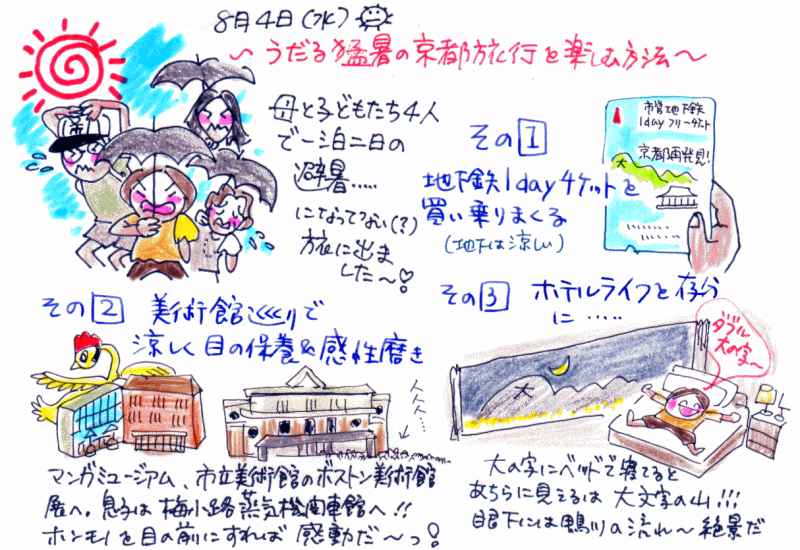 8月4日(水)
〜うだる猛暑の京都旅行を楽しむ方法〜
母と子どもたち4人
で一泊二日の
避暑.....
になってない(?)
旅に出ま
した〜!
その1
地下鉄1dayチケットを
買い乗りまくる
(地下は涼しい)
市営地下鉄
1dayフリーチケット
京都再発見!
大
その2 美術館巡りで
涼しく目の保養&感性磨き
人人人...
マンガミュージアム、市立美術館のボストン美術館
展へ。息子は梅小路蒸気機関車館へ!!
ホンモノを目の前にすれば感動だ〜っ!
その3 ホテルライフを存分
に.....
ダブル
大の字〜
大
大の字にベッドで寝てると
あちらに見えるは大文字の山!!!
眼下には鴨川の流れ〜絶景だ